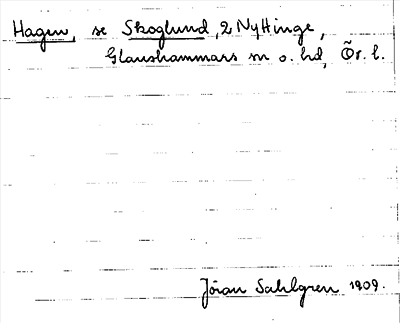 Hagen, se Skoglund, 2 Nyttinge,
Glanshammars sn o. hd, Ör. l.
Jöran Sahlgren 1909.